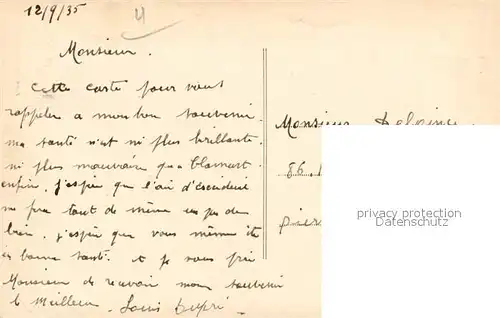 12/9/35
4
Monsieur.
Cette carte pour vous
rappeler a mon bon souvenir.
ma santé n'est ni plus brillante
ni plus mauvaise qu'a Clamart.
enfin, j'espère que l'air
me fera tout de même un peu de
bien. j'espère que vous même ête
en bonne santé. et je vous prie
Monsieur de recevoir mon souvenir
le meilleur. Louis Dupré.
Monsieur
86.
privacy protection
Datenschutz